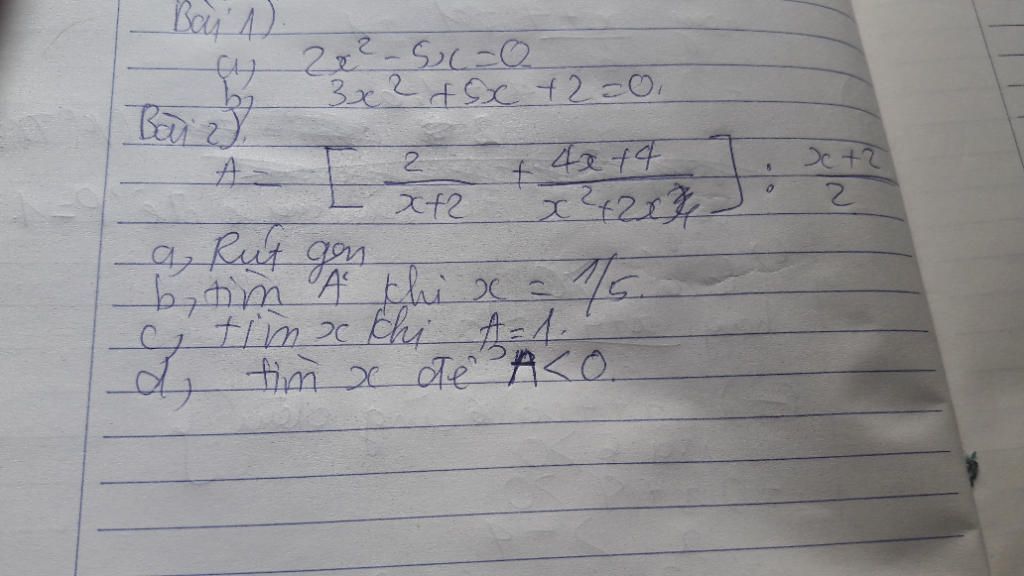 Bài 1).
a, 2x² - 5x = 0
b, 3x² + 5x + 2 = 0.
Bài 2).
A = [ 2/(x+2) + (4x+4)/(x²+2x) ] : (x+2)/2
a, Rút gọn
b, tìm A khi x = 1/5.
c, tìm x khi A = 1.
d, tìm x để A < 0.